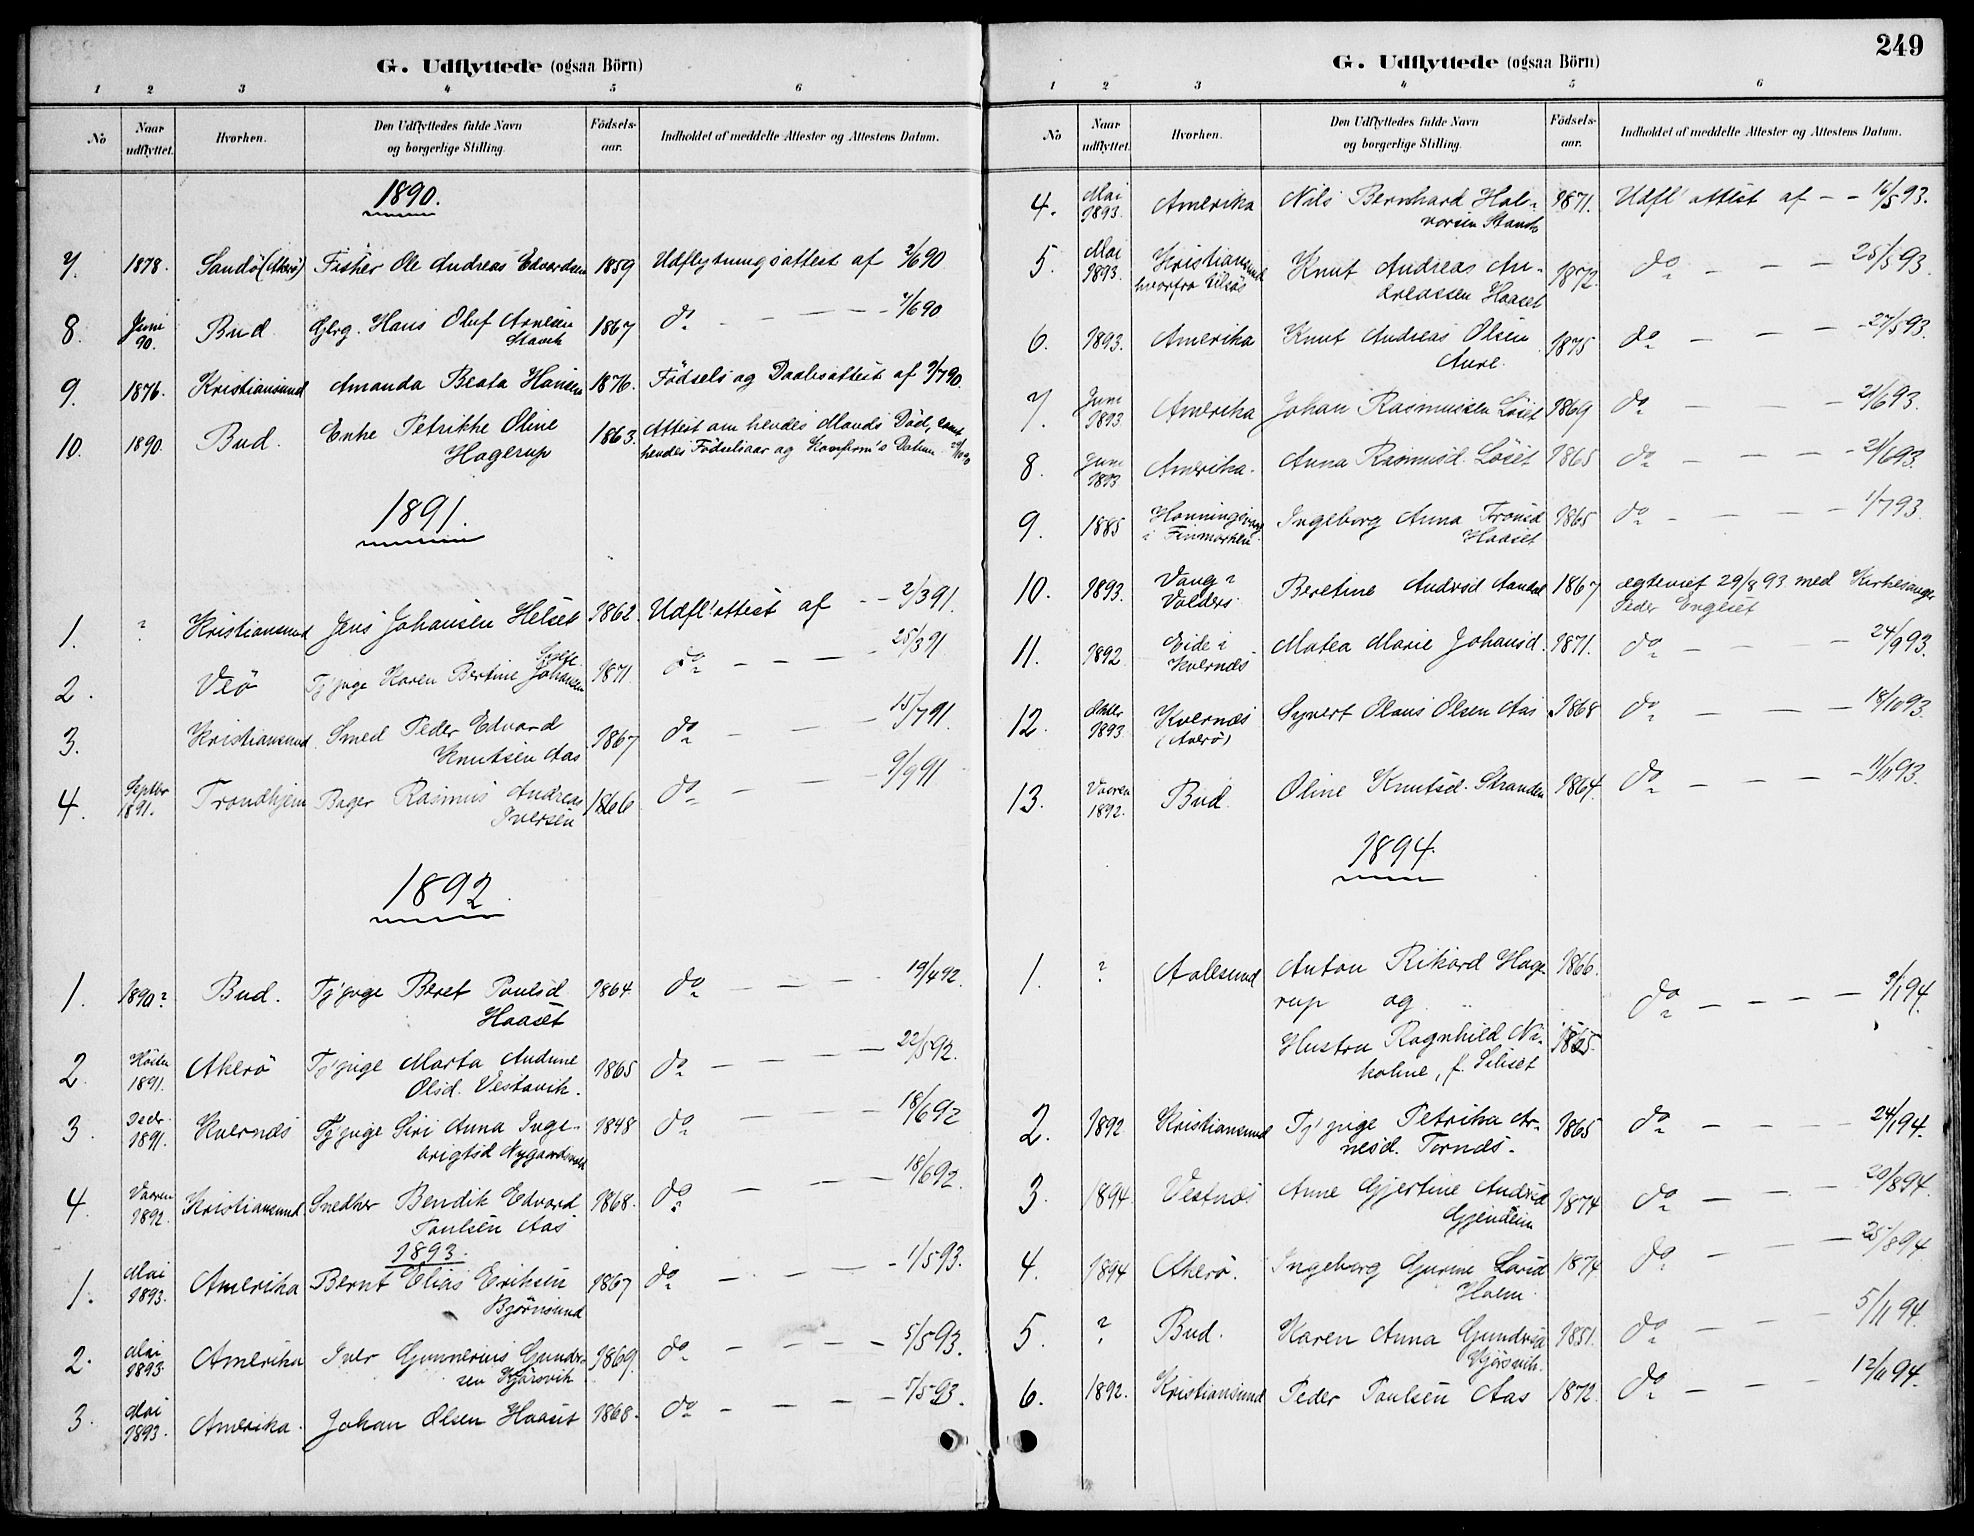 G. Udflyttede (ogsaa Börn)
1 2 3 4 5 6
No
Naar udflyttet.
Hvorhen.
Den Udflyttedes fulde Navn og borgerlige Stilling.
Födsels-aar.
Indholdet af meddelte Attester og Attestens Datum.
1890.
7. 1878. Sandö (Akerö) Fisker Ole Andreas Edvardsen 1859 Udflytningsattest af 2/6 90
8. Juni 90. Bud Gbrg. Hans Oluf Arnesen Stavik 1867 do - - - 7/6 90
9. 1876. Kristiansund Amanda Beata Hansen 1876. Födsels og Daabsattest af 9/7 90.
10. 1890. Bud. Enke Petrikke Oline Hagerup 1863. Attest om hendes Mands Död, samt
hendes Födselsaar og Konfirm's Datum
1891.
1. ? Kristiansund Jens Johansen Helset 1862. Udfl' attest af - - 2/3 91.
2. Veö Tj'pige Karen Bertine Johansen 1871. do - - - 25/3 91
3. Kristiansund Smed Peder Edvard Knutsen Aas 1867 do - - - 15/7 91.
4. Septbr 1891. Trondhjem Bager Rasmus Andreas Iversen 1866 do - - - 9/9 91
1892.
1. 1890? Bud. Tj'pige Beret Paulsd. Haaset 1864. do - - - 19/4 92.
2. Hösten 1891. Akerö Tj'pige Marta Andrine Olsd. Vestavik. 1865 do - - - 22/5 92.
3. Decbr. 1891. Kvernæs Tj'pige Siri Anna Inge-
brigtsd Nygaardsvold 1848 do - - - 18/6 92
4. Vaaren 1892. Kristiansund. Snedker Bendik Edvard Paulsen Aas 1868. do - - - 18/6 92.
1893.
1. Mai 1893. Amerika Bernt Elias Eriksen Bjørnsund 1867 do - - - 1/5 93.
2. Mai 1893. Amerika Iver Gunnerius Gunder-
sen Kjörsvik 1869. do - - - 5/5 93.
3. Mai 1893. Amerika. Johan Olsen Haaset 1868. do - - - 5/5 93.
249
G. Udflyttede (ogsaa Börn)
1 2 3 4 5 6
No
Naar udflyttet.
Hvorhen.
Den Udflyttedes fulde Navn og borgerlige Stilling.
Födsels-aar.
Indholdet af meddelte Attester og Attestens Datum.
4. Mai 1893. Amerika Nils Bernhard Hal-
vorsen Stavik 1871. Udfl' attest af - - 16/5 93.
5. Mai 1893. Kristiansund hvorfra tilsøs Knut Andreas An-
dreassen Haaset 1872. do - - - 25/5 93.
6. 1893. Amerika Knut Andreas Olsen Aure. 1875 do - - - 27/5 93.
7. Juni 1893. Amerika Johan Rasmussen Löset 1869 do - - - 21/6 93.
8. Juni 1893 Amerika. Anna Rasmusd. Löset 1865 do - - - 21/6 93.
9. 1885 Honningsvaag i Finmarken. Ingeborg Anna Tronsd. Haaset 1865 do - - - 1/7 93.
10. 1893. Vang i Valders. Beretine Andrsd Aandal 1867 ægteviet 29/8 93 med Kirkesanger
Peder Engeset
11. 1892 Eide i Kvernæs Matea Marie Johansd. 1871. do - - - 24/9 93.
12. Oktbr 1893. Kvernæs (Averö) Syvert Olaus Olsen Aas 1868 do - - - 18/10 93.
13. Vaaren 1892. Bud. Oline Knutsd. Stranden 1864. do - - - 11/11 93.
1894.
1. ? Aalesund Anton Rikard Hage-
rup og 1866.
Hustru Ragnhild Ni-
koline, f. Silset 1865. do - - - 3/1 94.
2. 1892 Kristiansund Tj'pige Petrika Ar-
nesd. Tornæs. 1865 do - - - 24/1 94.
3. 1894. Vestnæs Anne Gjertine Andrsd Gjendem 1874 do - - - 20/8 94.
4. 1894 Akerö. Ingeborg Gurine Larsd Holm 1874 do - - - 25/8 94
5. ? Bud. Karen Anna Gundersd Kjörsvik. 1851. do - - - 5/11 94.
6. 1892. Kristiansund Peder Paulsen Aas 1872. do - - - 12/11 94.